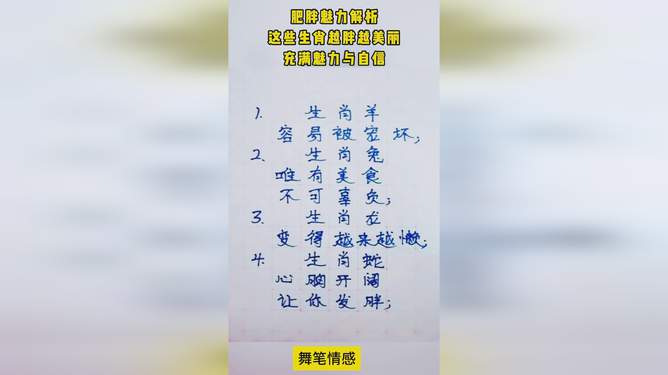 肥胖魅力解析
这些生肖越胖越美丽
充满魅力与自信
1. 生肖羊
容易被宠坏;
2. 生肖兔
唯有美食
不可辜负;
3. 生肖龙
变得越来越懒;
4. 生肖蛇
心胸开阔
让你发胖;
舞笔情感